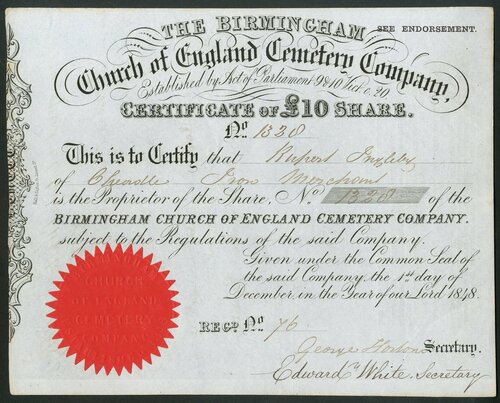 THE BIRMINGHAM
SEE ENDORSEMENT.
Church of England Cemetery Company,
Established by Act of Parliament 9 & 10 Vict. c. 20.
CERTIFICATE OF £10 SHARE.
No. 1328
This is to Certify that Rupert Ingleby
of Cheadle Iron Merchant
is the Proprietor of the Share, No. 1328 of the
BIRMINGHAM CHURCH OF ENGLAND CEMETERY COMPANY.
subject to the Regulations of the said Company.
Given under the Common Seal of
the said Company, the 1st day of
December in the Year of our Lord 1848.
CHURCH
OF ENGLAND
CEMETERY
COMPANY
REGD. No. 76
George Secretary.
Edward White, Secretary